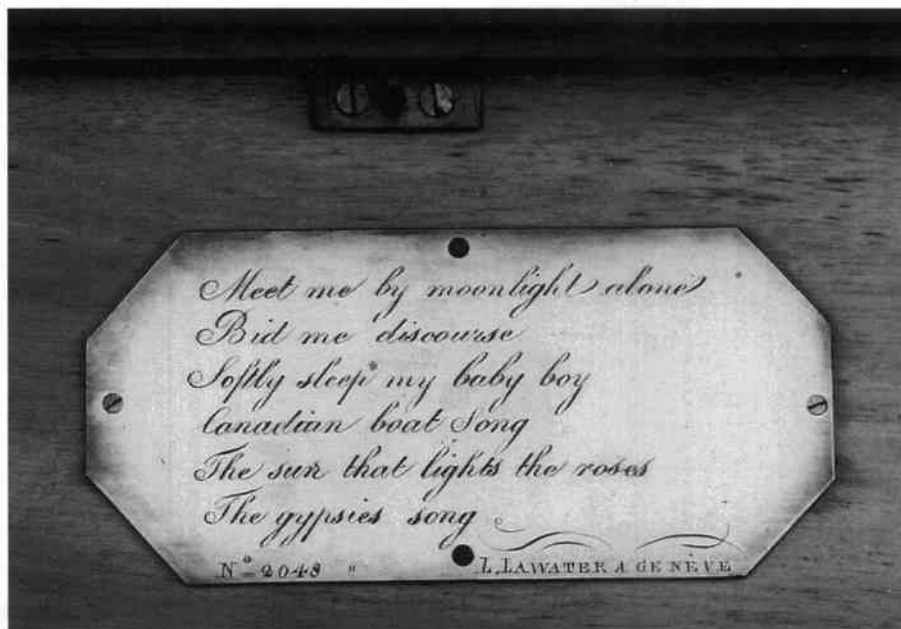 Meet me by moonlight alone
Bid me discourse
Softly sleep my baby boy
Canadian boat Song
The sun that lights the roses
The gypsies song
Nº 2048 " L. LAWATER A GENÈVE